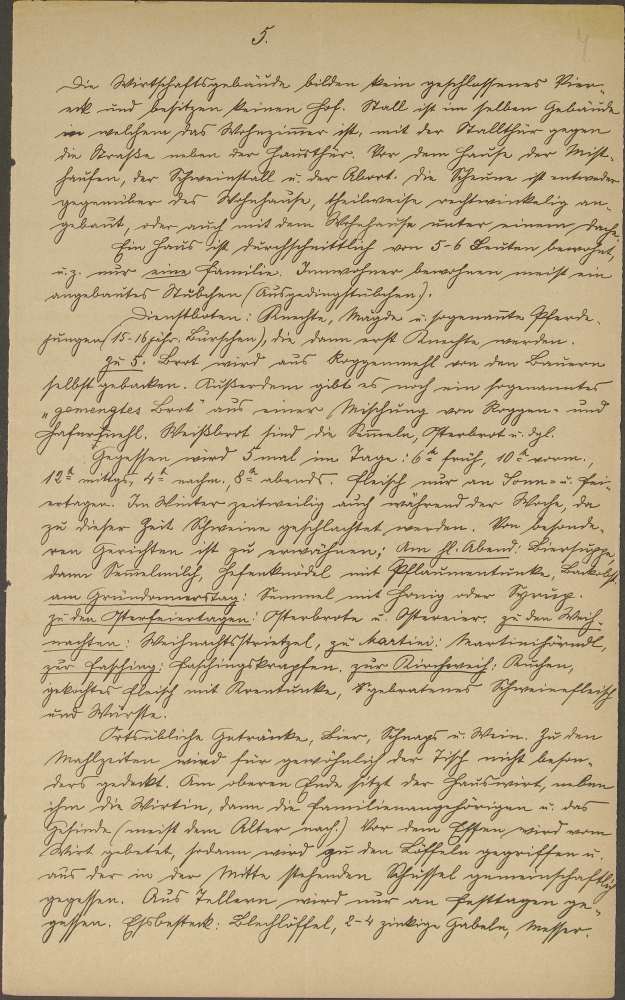 5.
Die Wirtschaftsgebäude bilden kein geschlossenes Vier-
eck und besitzen keinen Hof. Stall ist im selben Gebäude
in welchem das Wohnzimmer ist, mit der Stallthür gegen
die Straße neben der Hausthür. Vor dem Hause der Mist-
haufen, der Schweinstall u. der Abort. Die Scheune ist entweder
gegenüber des Wohnhause, theilweise rechtwinkelig an-
gebaut, oder auch mit dem Wohnhause unter einem Dache.
Ein Haus ist durchschnittlich von 5-6 Leuten bewohnt,
u.z. nur eine Familie. Innwohner bewohnen meist ein
angebautes Stübchen (Ausgedingstübchen).
Dienstboten: Knechte, Mägde u. sogenannte Pferde-
jungen (15-16 jähr. Bürschen), die dann erst Knechte werden.
Zu 5. Brot wird aus Roggenmehl von den Bauern
selbst gebacken. Außerdem gibt es noch ein sogenanntes
"gemengtes Brot" aus einer Mischung von Roggen- und
Hafermehl. Weißbrot sind die Semmeln, Osterbrot u. dgl.
Gegessen wird 5 mal im Tage: 6h früh, 10h vorm.,
12h mittgs., 4h nachm., 8h abends. Fleisch nur an Sonn- u. Fei-
ertagen. Im Winter zeitweilig auch während der Woche, da
zu dieser Zeit Schweine geschlachtet werden. Von besonde-
ren Gerichten ist zu erwähnen: Am hl. Abend: Biersuppe,
dann Semmelmilch, Hefenknödel mit Pflaumentunke, Backobst,
am Gründonnerstag: Semmel mit Honig oder Syrup.
zu den Osterfeiertagen: Osterbrote u. Ostereier, zu den Weih-
nachten: Weihnachtsstrietzel, zu Martini: Martinihörndl,
zur Fasching: Faschingskrapfen, zur Kirchweih: Kuchen,
gekochtes Fleisch mit Krentunke, gebratenes Schweinefleisch
und Würste.
Ortsübliche Getränke, Bier, Schnaps u. Wein. Zu den
Mahlzeiten wird für gewöhnlich der Tisch nicht beson-
ders gedeckt. Am oberen Ende sitzt der Hauswirt, neben
ihm die Wirtin, dann die Familienangehörigen u. das
Gesinde (meist dem Alter nach.) Vor dem Essen wird vom
Wirt gebetet, sodann wird zu den Löffeln gegriffen u.
aus der in der Mitte stehenden Schüssel gemeinschaftlich
gegessen. Aus Tellern wird nur an Festtagen ge-
gessen. Essbesteck: Blechlöffel, 2-4 zinkige Gabeln, Messer.